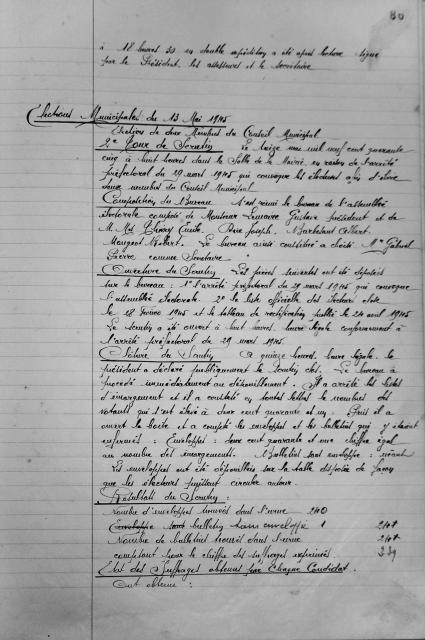 80
à 18 heures 30 en double expédition a été après lecture signé
par le Président, les assesseurs et le secrétaire
Elections Municipales du 13 Mai 1945
Election de deux Membres du Conseil Municipal
2e Tour de Scrutin Le treize mai mil neuf cent quarante
cinq à huit heures dans la Salle de la Mairie, en vertu de l'arrêté
préfectoral du 29 mars 1945 qui convoque les électeurs afin d'élire
deux membres du Conseil Municipal
Composition du Bureau S'est réuni le bureau de l'assemblée
électorale composé de Monsieur Lemaire Gustave président et de
M. Mrs Emile, Joseph, Albert.
Robert. Le bureau ainsi constitué a choisi Mr Gabriel
Pierre comme Secrétaire
Ouverture du Scrutin Les pièces suivantes ont été déposées
sur le bureau : 1° l'arrêté préfectoral du 29 mars 1945 qui convoque
l'assemblée électorale. 2° la liste officielle des électeurs close
le 18 Février 1945 et le tableau de rectification publié le 24 avril 1945
Le scrutin a été ouvert à huit heures, heure légale conformément à
l'arrêté préfectoral du 29 mars 1945.
Clôture du Scrutin A quinze heures, heure légale, le
président a déclaré publiquement le scrutin clos. Le bureau a
procédé immédiatement au dépouillement. Il a arrêté les listes
d'émargement et il a constaté en toutes lettres le nombre des
votants qui s'est élevé à deux cent quarante et un. Puis il a
ouvert la boîte et a compté les enveloppes et les bulletins qui y étaient
enfermés : Enveloppes : deux cent quarante et une chiffre égal
au nombre des émargements. Bulletins sans enveloppe : néant
Les enveloppes ont été dépouillées sur la table disposée de façon
que les électeurs puissent circuler autour.
Résultats du Scrutin :
Nombre d'enveloppes trouvées dans l'urne 240
Enveloppe sans bulletin sans enveloppe 1 241
Nombre de bulletins trouvés dans l'urne 241
comptant pour le chiffre des suffrages exprimés. 239
Etat des Suffrages obtenus par Chaque Candidat.
Ont obtenu :